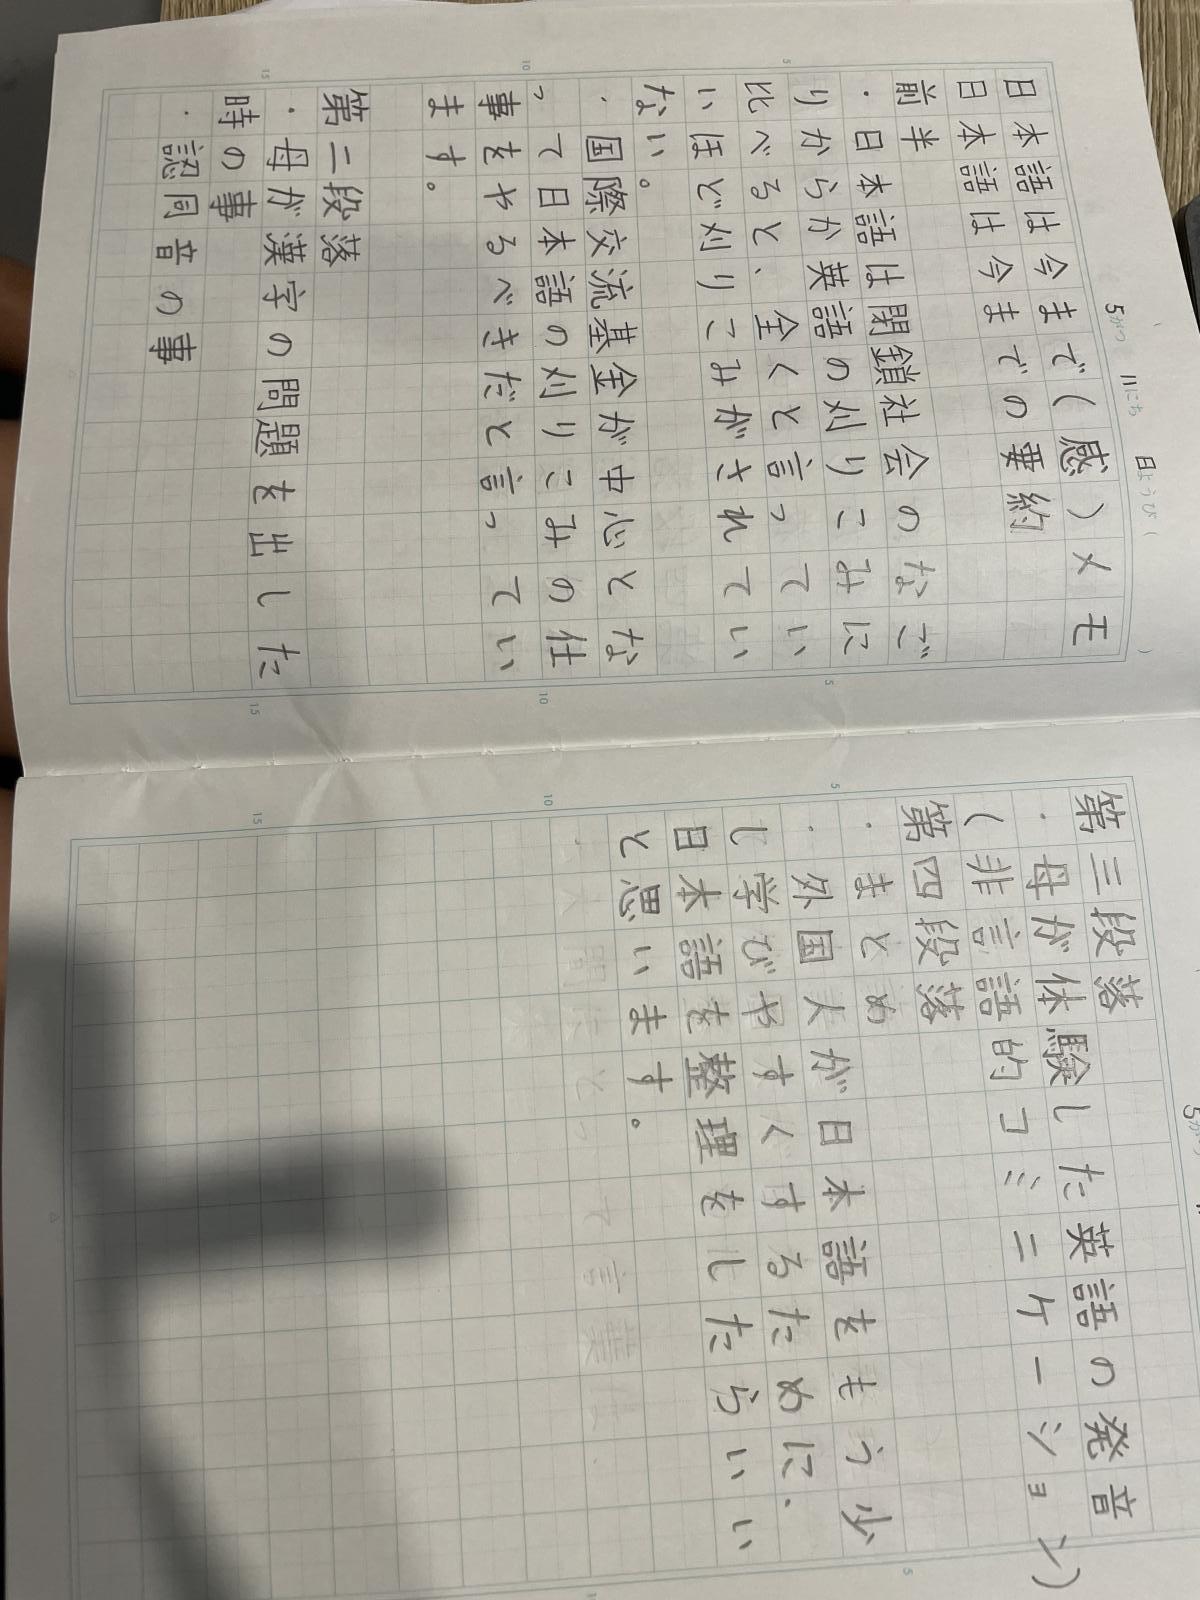 5がつ 11にち 日ようび( )
日本語は今まで(感)メモ
日本語は今までの要約
前半
・日本語は閉鎖社会のなご
りからか英語の刈りこみに
比べると、全くと言ってい
いほど刈りこみがされてい
ない。
・国際交流基金が中心とな
って日本語の刈りこみの仕
事をやるべきだと言ってい
ます。
第二段落
・母が漢字の問題を出した
時の事
・認同音の事
第三段落
・母が休験した英語の発音
(非言語的コミニケーション)
第四段落
・まとめ
・外国人が日本語をもう少
し学びやすくするために、
日本語を整理をしたらいい
と思います。